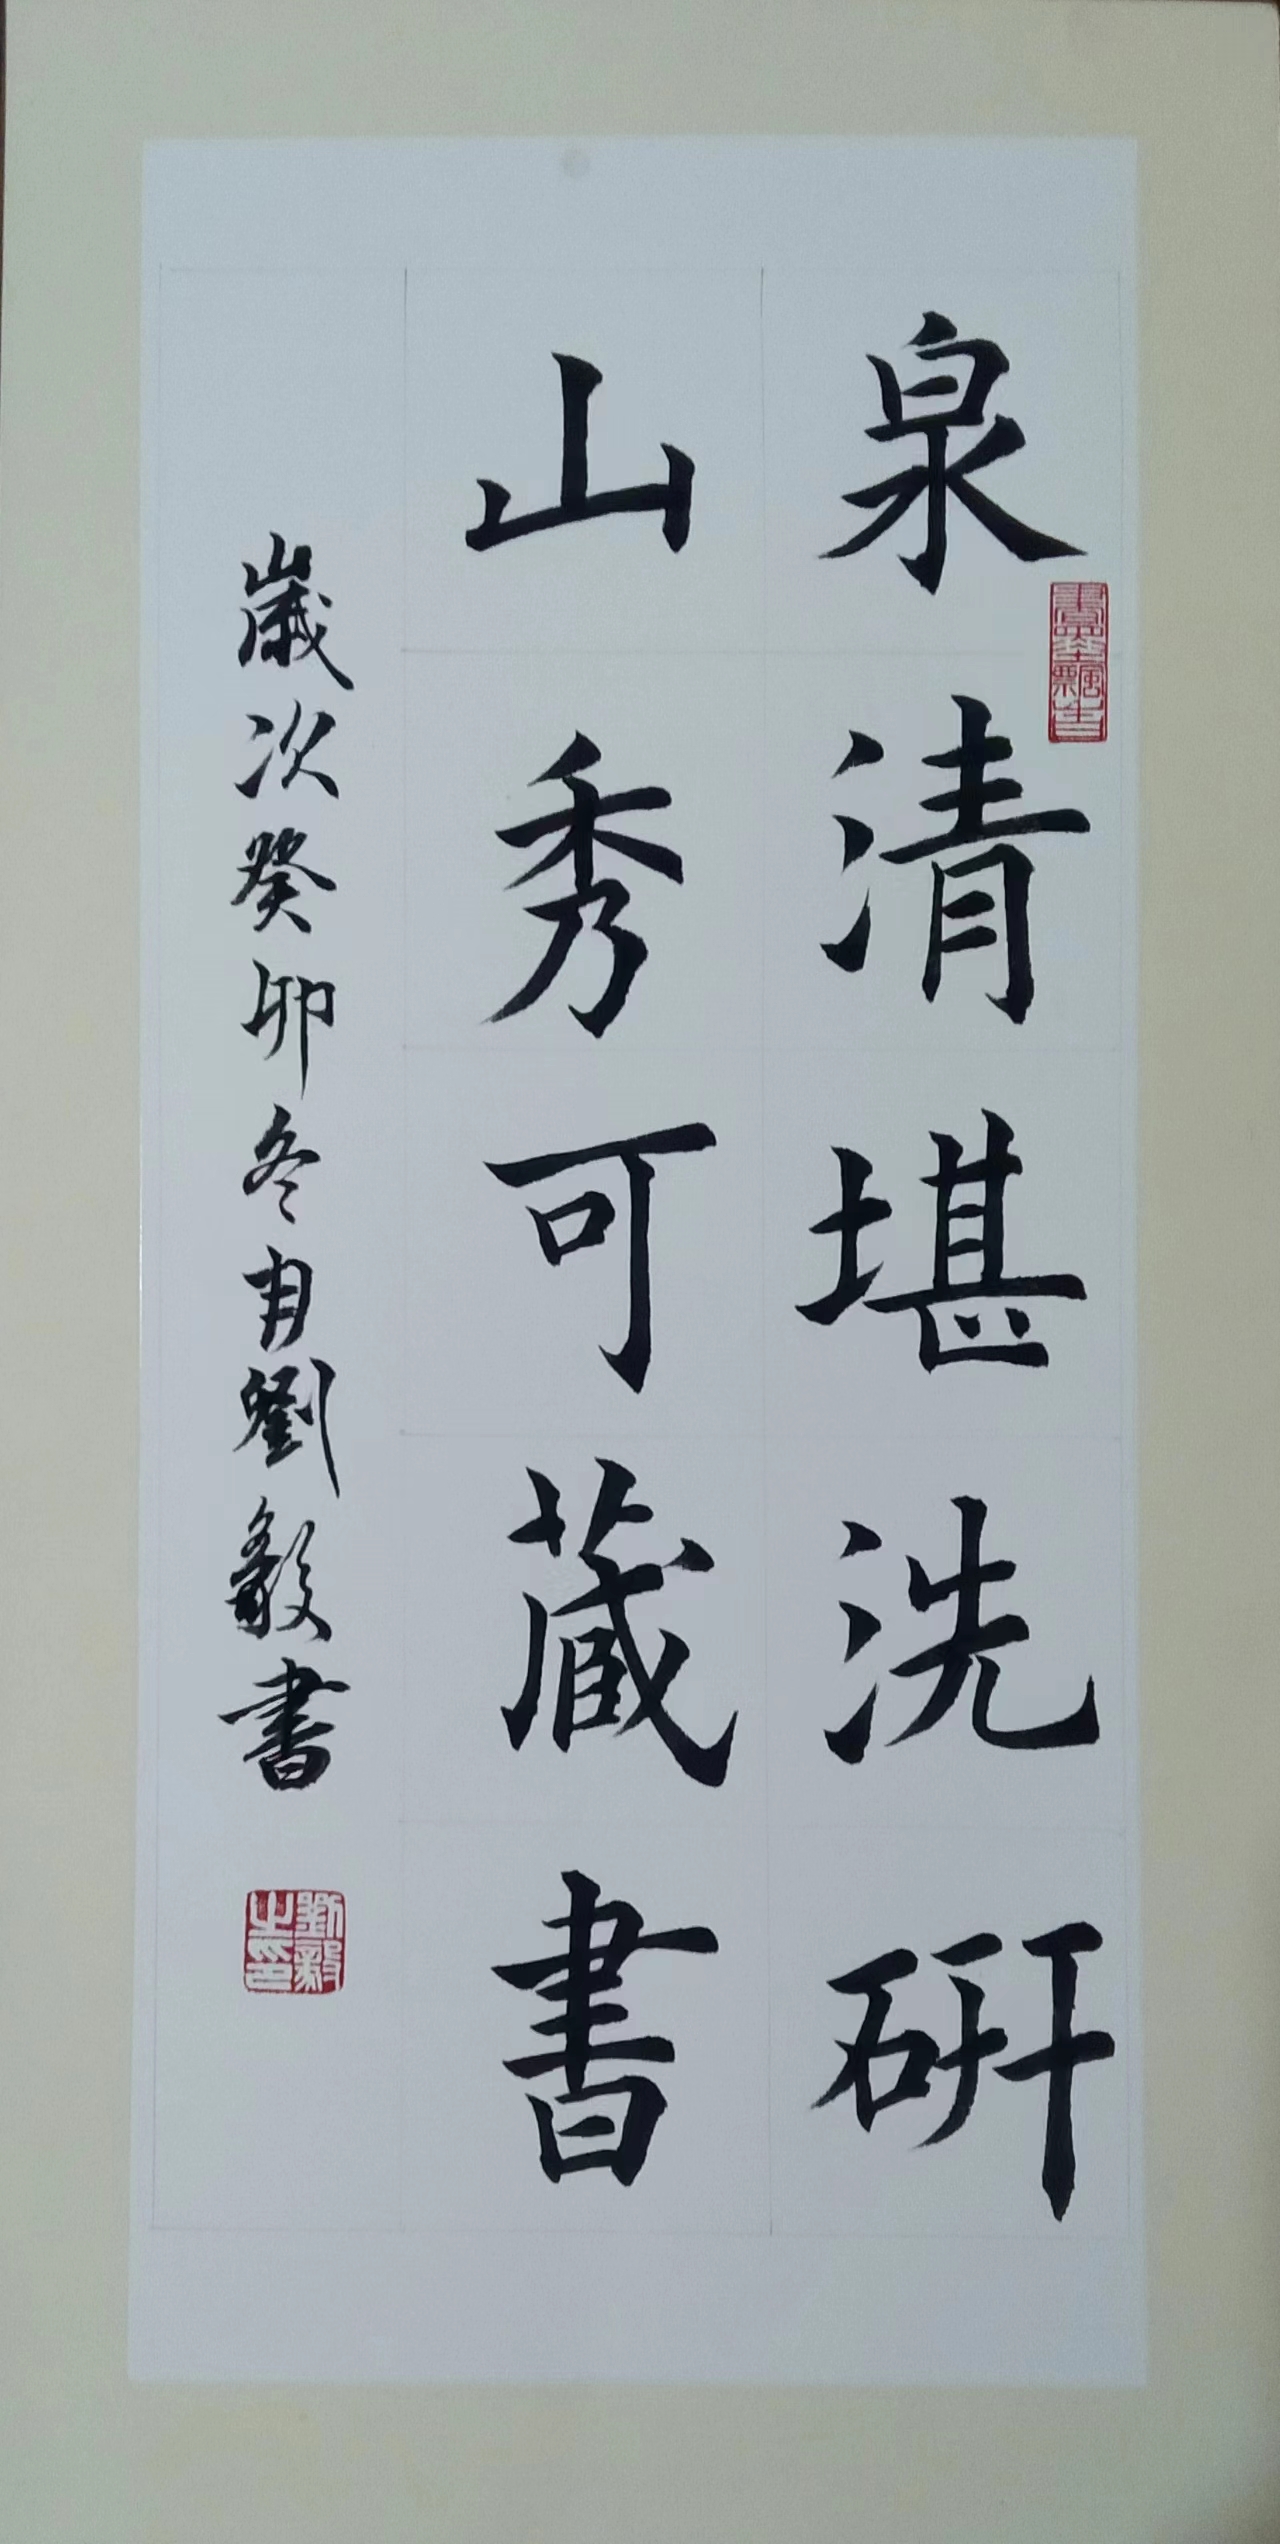 泉清堪洗研
山秀可藏書
歲次癸卯冬月劉毅書
劉毅之印